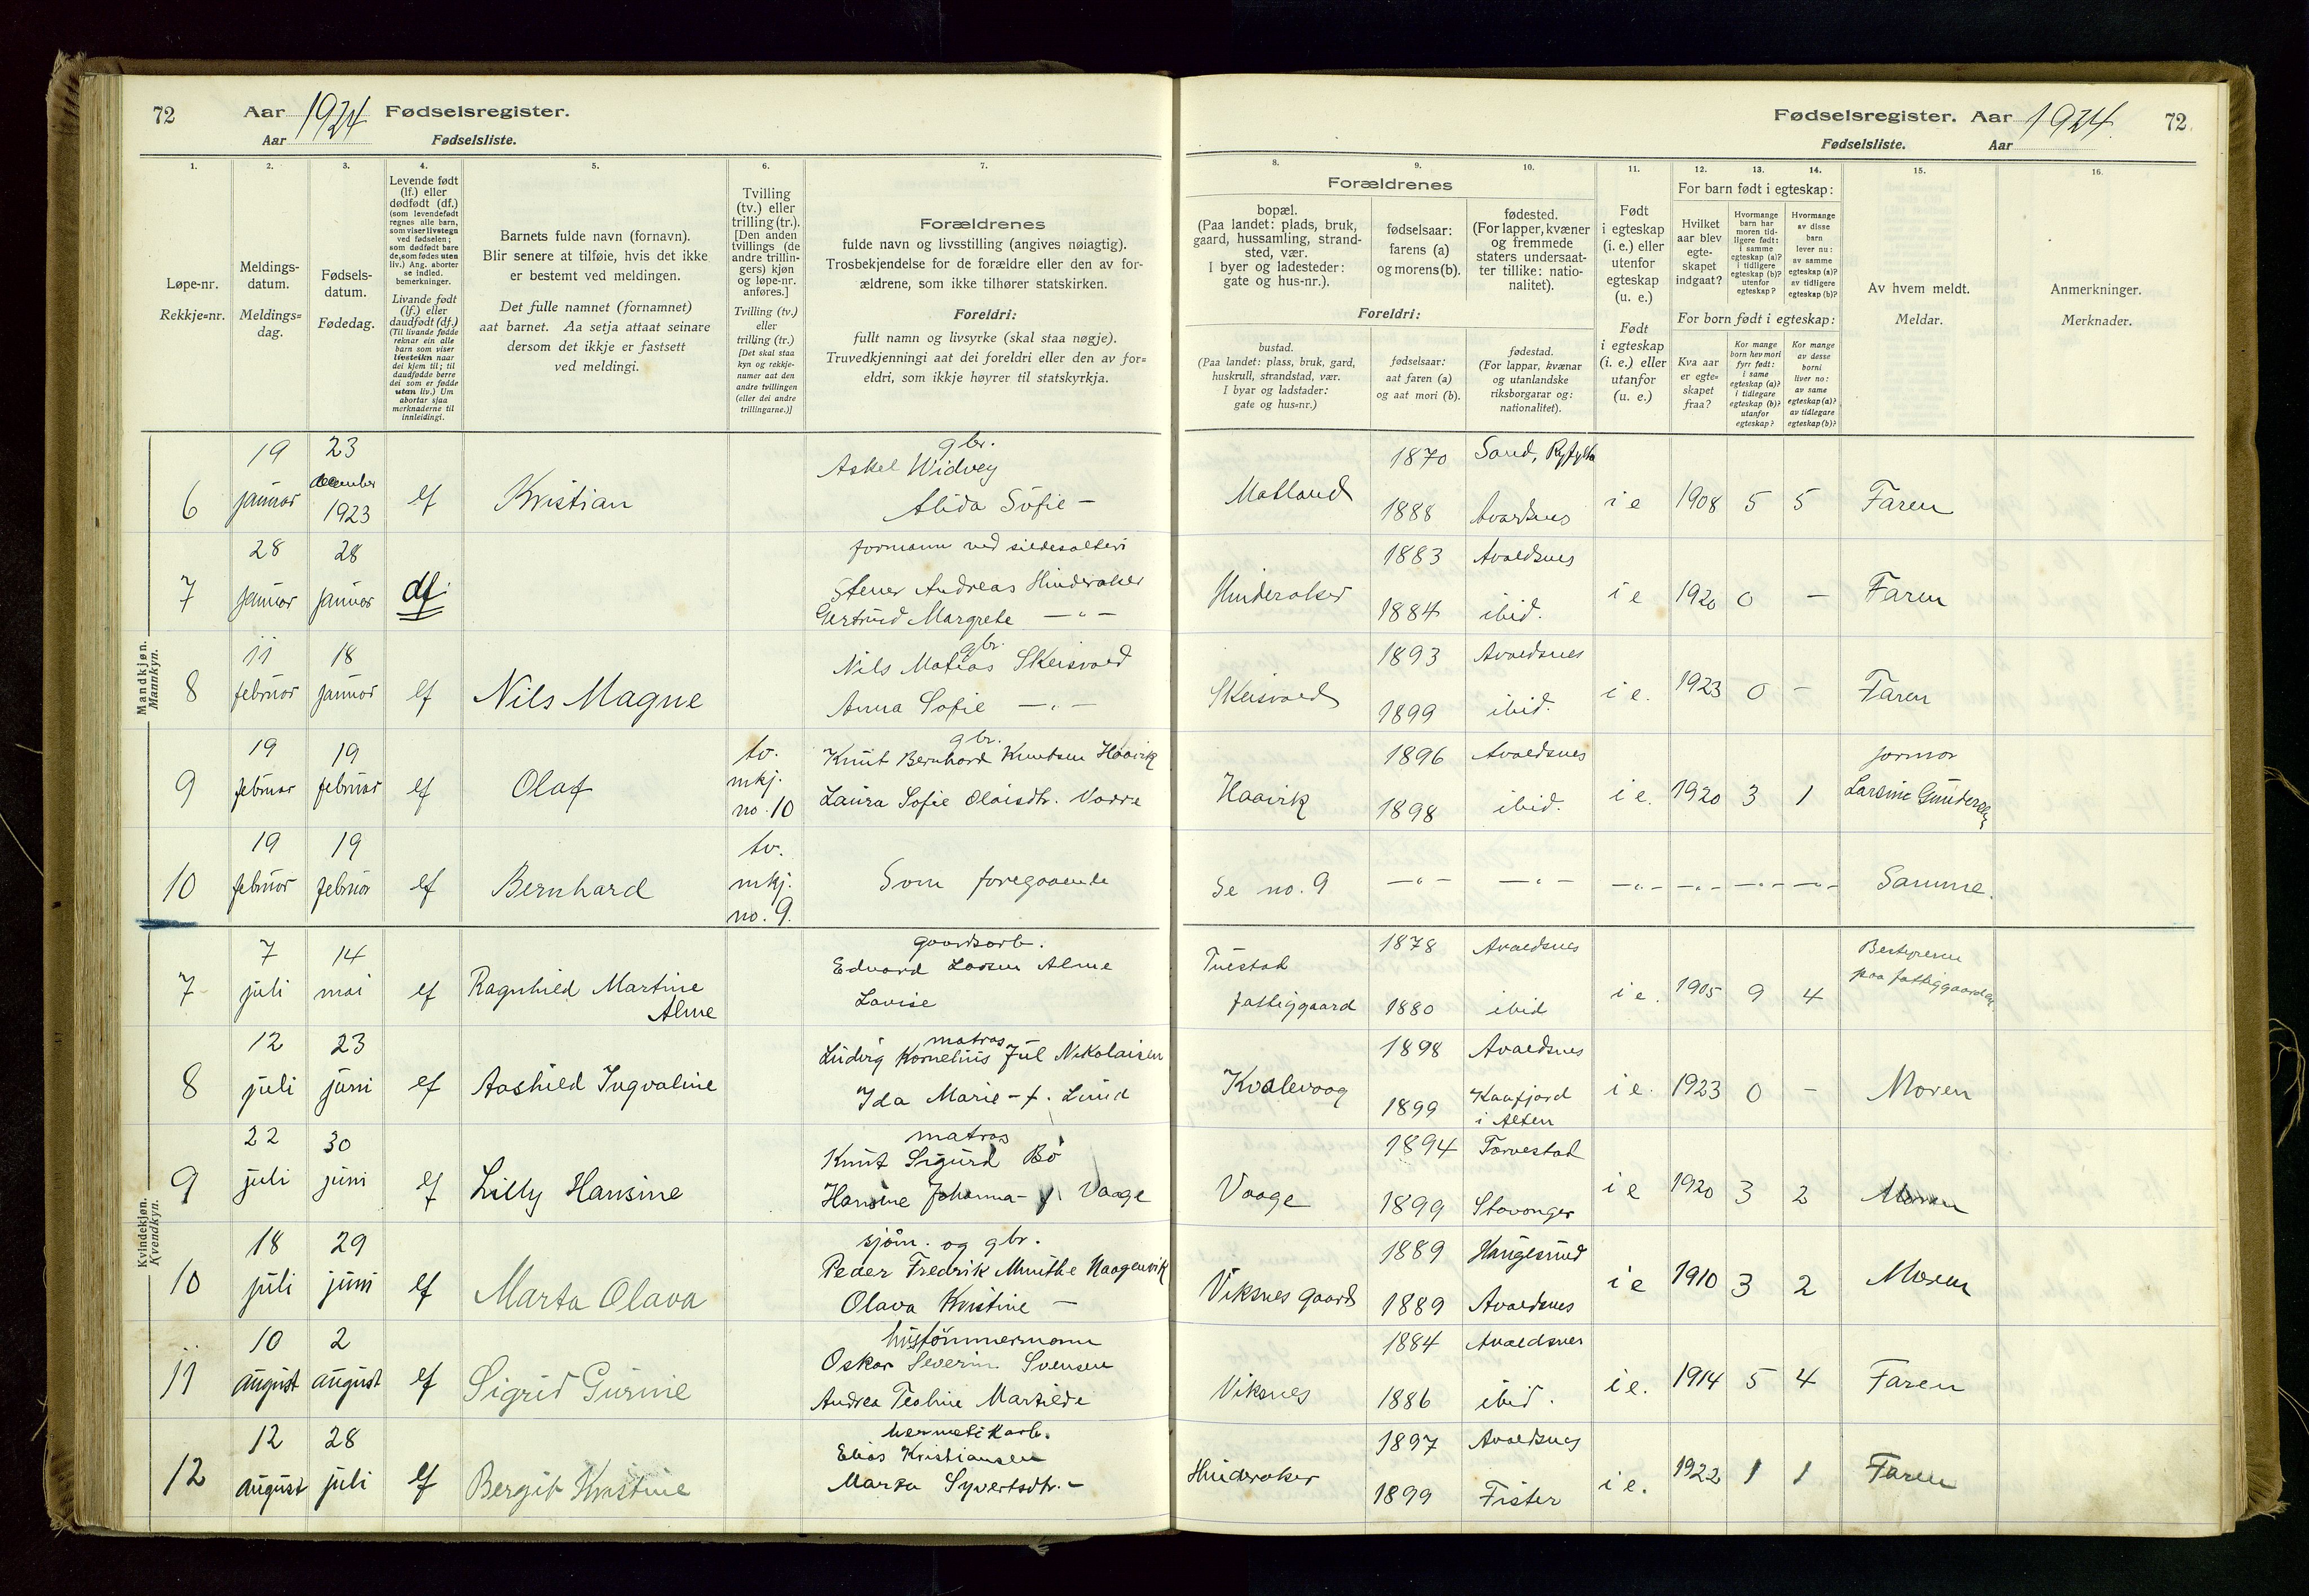 72 Aar 1924 Fødselsregister.
Aar Fødselsliste.
Fødselsregister. Aar 1924. 72.
Fødselsliste. Aar
1. 2. 3. 4. 5. 6. 7.
Løpe-nr.
Rekkje-nr.
Meldings-
datum.
Meldings-
dag.
Fødsels-
datum.
Fødedag.
Levende født
(lf.) eller
dødfødt (df.)
(som levendefødt
regnes alle barn,
som viser livstegn
ved fødselen;
som dødfødt bare
de, som fødes uten
liv.) Ang. aborter
se indled.
bemerkninger.
Livande født
(lf.) eller
daudfødt (df.)
(Til livande fødde
reknar ein alle
barn som viser
livsteikn naar
dei kjem til; til
daudfødde berre
dei som er fødde
utan liv.) Um
abortar sjaa
merknaderne til
innleidingi.
Barnets fulde navn (fornavn).
Blir senere at tilføie, hvis det ikke
er bestemt ved meldingen.
Det fulle namnet (fornamnet)
aat barnet. Aa setja attaat seinare
dersom det ikkje er fastsett
ved meldingi.
Tvilling
(tv.) eller
trilling (tr.).
[Den anden
tvillings (de
andre trillin-
gers) kjøn
og løpe-nr.
anføres.]
Tvilling (tv.)
eller
trilling (tr.)
[Det skal staa
kyn og rekkje-
numer aat den
andre tvillingen
(eller dei andre
trillingarne.)]
Forældrenes
fulde navn og livsstilling (angives nøiagtig).
Trosbekjendelse for de forældre eller den av for-
ældrene, som ikke tilhører statskirken.
Foreldri:
fullt namn og livsyrke (skal staa nøgje).
Truvedkjenningi aat dei foreldri eller den av for-
eldri, som ikkje høyrer til statskyrkja.
8. 9. 10. 11. 12. 13. 14. 15. 16.
Forældrenes
bopæl.
(Paa landet: plads, bruk,
gaard, hussamling, strand-
sted, vær.
I byer og ladesteder:
gate og hus-nr.).
fødselsaar:
farens (a)
og morens (b).
fødested.
(For lapper, kvæner
og fremmede
staters undersaat-
ter tillike: natio-
nalitet).
Foreldri:
bustad.
(Paa landet: plass, bruk, gard,
huskrull, strandstad, vær.
I byar og ladstader:
gate og hus-nr.)
fødselsaar:
aat faren (a)
og aat mori (b).
fødestad.
(For lappar, kvænar
og utanlandske
riksborgarar og:
nationalitet).
Født
i egteskap
(i. e.) eller
utenfor
egteskap
(u. e.)
Født
i egteskap
(i. e.) eller
utanfor
(u. e.)
For barn født i egteskap:
Hvilket
aar blev
egte-
skapet
indgaat?
Hvormange
barn har
moren tid-
ligere født:
i samme
egteskap (a)?
i tidligere
egteskap (b)?
utenfor
egteskap?
Hvormange
av disse
barn
lever nu:
av samme
egteskap (a)?
av tidligere
egteskap (b)?
For born født i egteskap:
Kva aar
er egte-
skapet
fraa?
Kor mange
born hev mori
fyrr født:
i same
egteskap (a)?
i tidlegare
egteskap (b)?
utanfor
egteskap?
Kor mange
av desse
borni
liver no:
av same
egteskap (a)?
av tidlegare
egteskap (b)?
Av hvem meldt.
Meldar.
Anmerkninger.
Merknader.
Mandkjøn.
Mannkyn.
19 23 gbr. 1870 Sand, Ryfylke
Askel Widvey
6 januar december 1923 lf Kristian Alida Sofie — Matland 1888 Avaldsnes i e 1908 5 5 Faren
28 28 formann ved sildesalteri 1883 Avaldsnes
7 januar januar df. Stener Andreas Hinderaker Hinderaker i e 1920 0 – Faren
Gertrud Margrete — „ — 1884 ibid.
11 18 gbr. 1893 Avaldsnes
Nils Matias Skeisvold
8 februar januar lf Nils Magne Anna Sofie — „ — Skeisvold 1899 ibid. i e. 1923 0 – Faren
19 19 tv. gbr. 1896 Avaldsnes formor
Knut Bernhard Knutsen Haavik
9 februar februar lf Olaf mkj. no. 10 Laura Sofie Olaisdtr. Vorre Haavik 1898 ibid. i e. 1920 3 1 Larsine Gundersen
19 19 tv.
10 februar februar lf Bernhard mkj. no. 9. Som foregaaende Se no. 9 — „ — — „ — — „ — — „ — — „ — — „ — Samme.
Kvindekjøn.
Kvendkyn.
7 14 gaardsarb. Tuestad 1878 Avaldsnes Bestyreren
Edvard Larsen Alme paa fattiggaarden
7 juli mai lf Ragnhild Martine Alme Lovise fattiggaard 1880 ibid i e. 1905 9 4
12 23 matros 1898 Avaldsnes
Ludvig Kornelius Jul Nikolaisen
8 juli juni lf Aashild Ingvaline Ida Marie – f. Lund Kvalevaag 1899 Kaafjord i Alten i e. 1923 0 – Moren
22 30 matros 1894 Torvestad
Knut Sigurd Bö
9 juli juni lf Lilly Hansine Hansine Johanna – f. Vaage Vaage 1899 Stavanger i e 1920 3 2 Moren
18 29 sjöm. og gbr. 1889 Haugesund
Peder Fredrik Munthe Haagenvik
10 juli juni lf Marta Olava Olava Kristine — Viksnes gaard 1889 Avaldsnes i e 1910 3 2 Moren
10 2 hustömmermann 1884 Avaldsnes
Oskar Severin Svensen
11 august august lf Sigrid Gurine Andrea Teoline Martilde Viksnes 1886 ibid. i e. 1914 5 4 Faren
12 28 hermetikarb. 1897 Avaldsnes
Elias Kristiansen
12 august juli lf Bergit Kristine Marta Syvertsdtr. – Hinderaker 1899 Fister i e. 1922 1 1 Faren